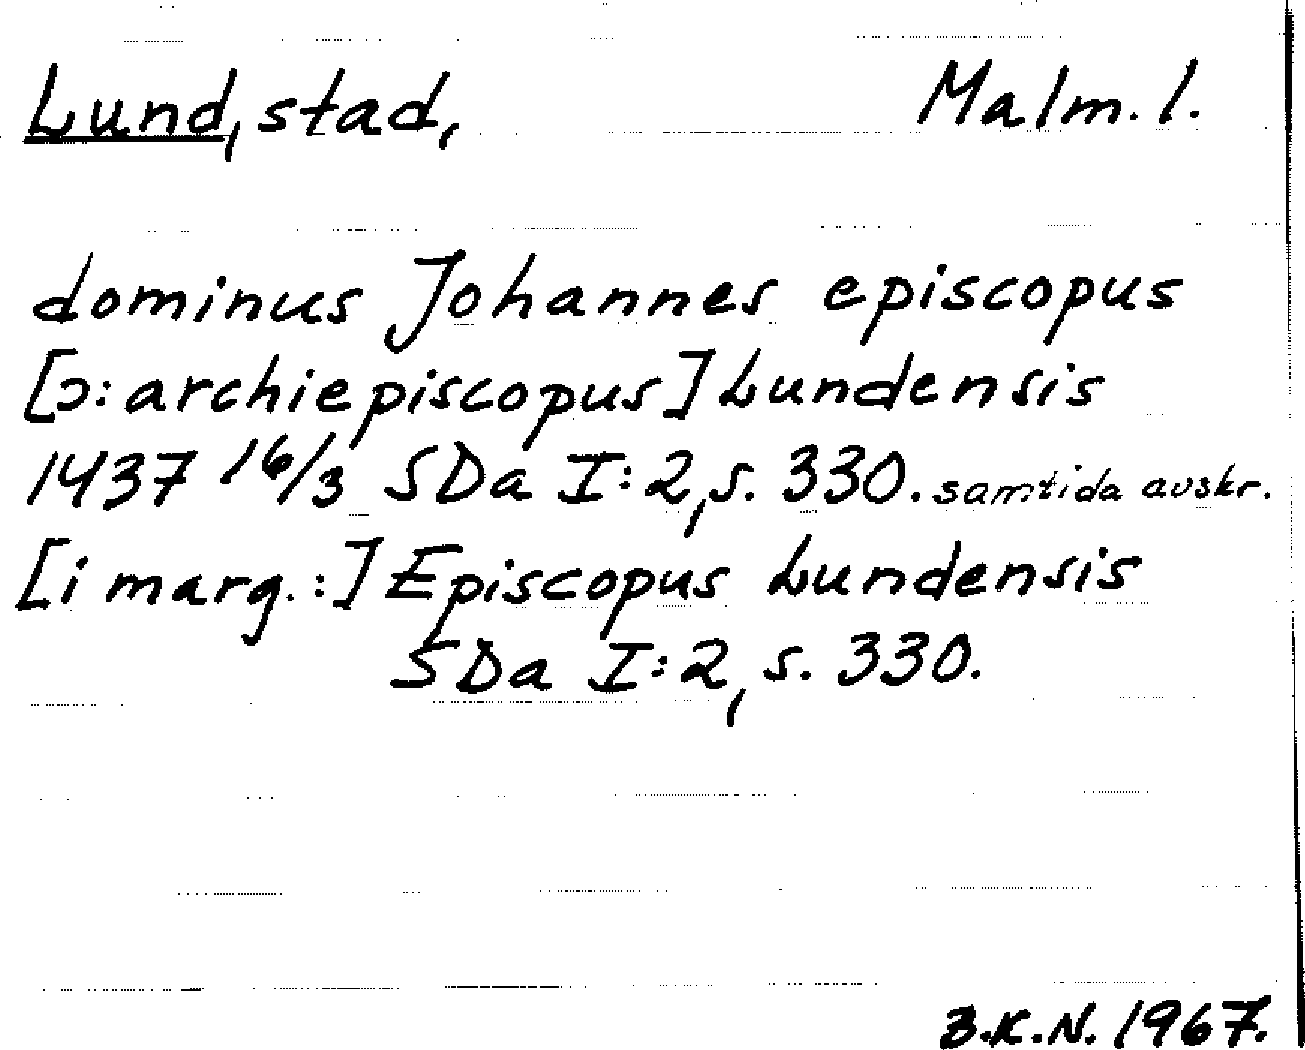 Lund, stad, Malm. l.
dominus Johannes episcopus
[ɔ: archiepiscopus] Lundensis
1437 16/3 SDa I:2, s. 330. samtida avskr.
[i marg.:] Episcopus Lundensis
SDa I:2, s. 330.
B.K.N. 1967.